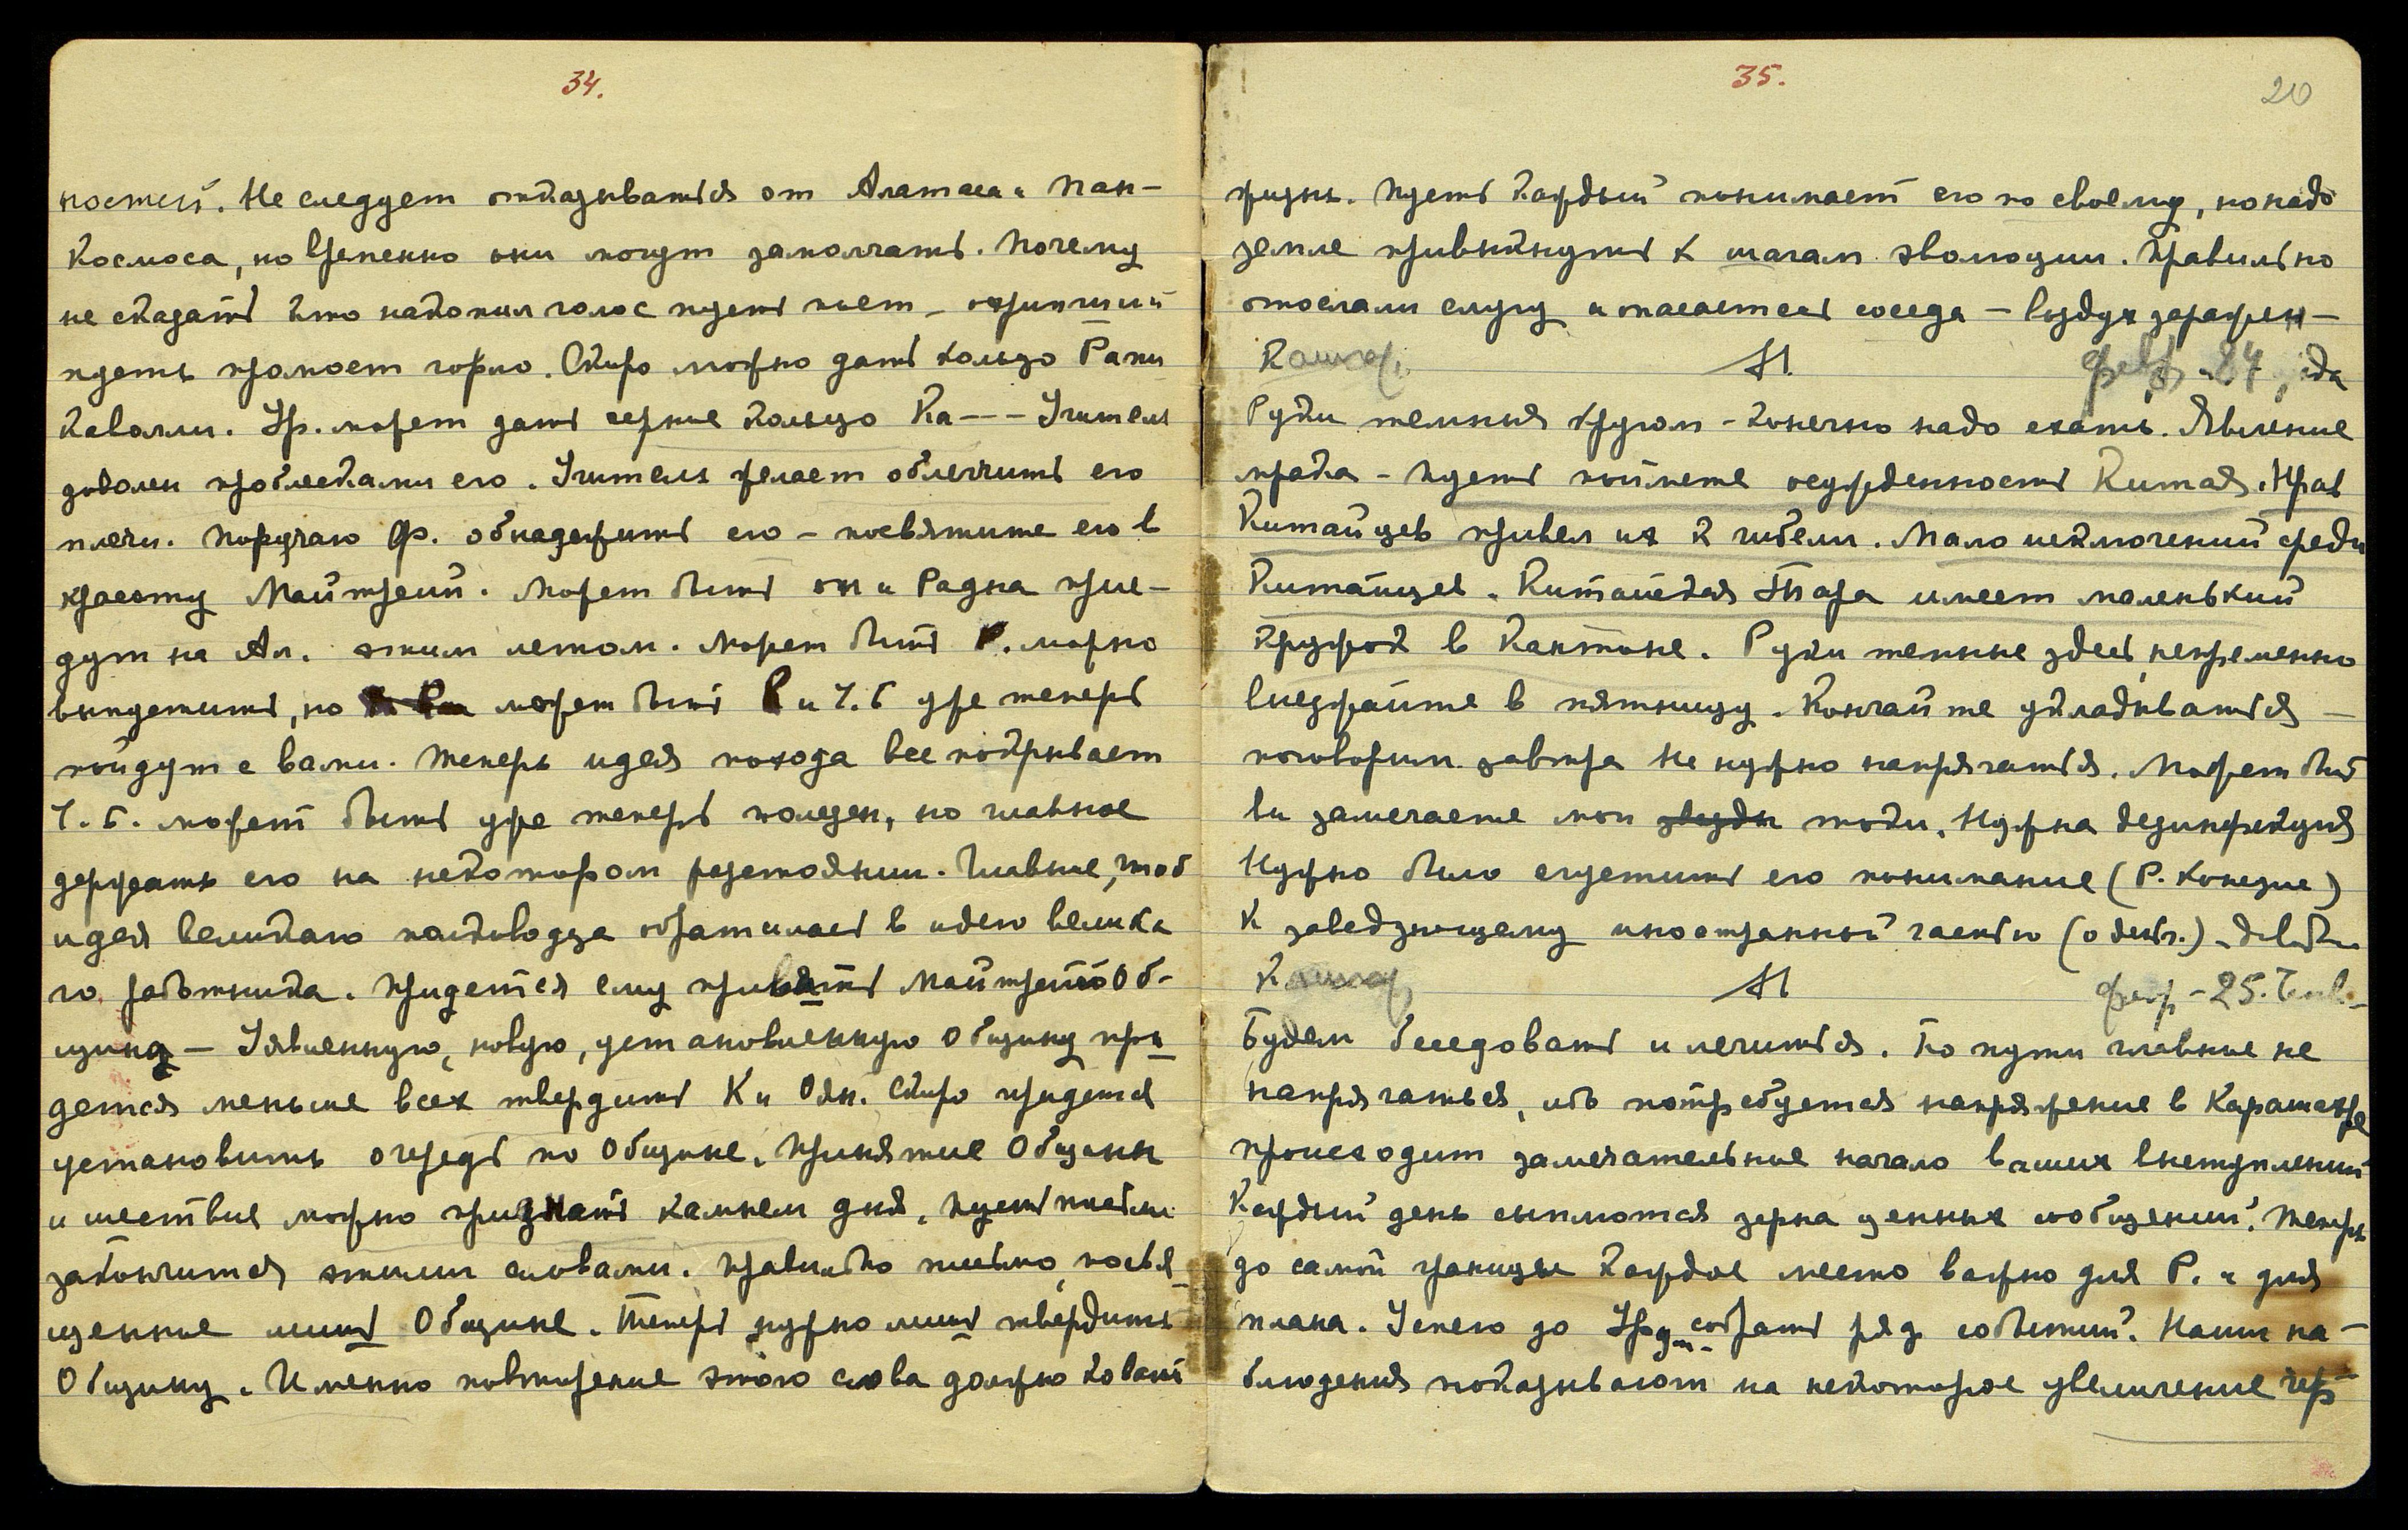 34.
ностей. Не следует отказываться от Алатаса и Пан-
Космоса, но временно они могут замолчать. Почему
не сказать что накопил голос пусть поет – охрипший
пусть промоет горло. Скоро можно дать кольцо Рами
Кавалли. Ур. может дать черное кольцо Ка--- Учитель
доволен проблесками его. Учитель желает облегчить его
плечи. Поручаю Ф. обнадежить его – посвятите его в
красоту Майтрейи. Может быть он и Радна прие-
дут на Ал. этим летом. Может быть Р. можно
выпустить, но может быть Р и Ч.Б уже теперь
пойдут с вами. Теперь идея похода все покрывает
Ч.Б. может быть уже теперь полезен, но главное
держать его на некотором расстоянии. Главное, чтоб
идея великаго полководца обратилась в идею велика
го работника. Придется ему принять Майтрею Об-
щину – Уявленную, новую, установленную Общину при
дется меньше всех твердить К и Оян. Скоро придется
установить очередь по Общине. Принятие Общины
и шествие можно признать камнем дня, пусть письмо
закончится этими словами. Правильно письмо, посвя-
щенное лишь Общине. Теперь нужно лишь твердить
Общину. Именно повторение этого слова должно ковать
35.
20
жизнь. Пусть каждый понимает его по своему, но надо
земле привыкнуть к шагам эволюции. Правильно
отослали слугу и опасаетесь соседа – воздух заражен –
Кашгар. М. февр. 24, среда
Руки темныя кругом – конечно надо ехать. Явление
мрака – пусть поймете осужденность Китая. Нрав
Китайцев привел их к гибели. Мало исключений среди
Китайцев. Китайская Тара имеет маленький
кружок в Кантоне. Руки темные здесь, непременно
выезжайте в пятницу. Кончайте укладываться –
поговорим завтра не нужно напрягаться. Может быть
вы замечаете мои звезды токи. Нужна дезинфекция
Нужно было сгустить его понимание (Р. Конезне)
К заведующему иностранной частью
Кашгар М февр – 25. Четв.
Будем беседовать и лечиться. По пути главное не
напрягаться, ибо потребуется напряжение в Карашахре
происходит замечательное начало ваших выступлений
Каждый день сыплются зерна ценных сообщений. Теперь
до самой границы каждое место важно для Р. и для
плана. Успею до Ур. собрать ряд событий. Наши на-
блюдения показывают на некоторое увеличение чер